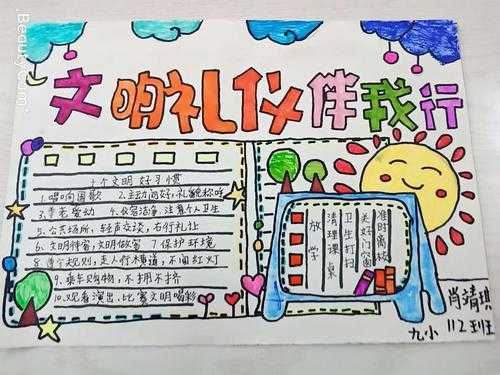 BeautyCam
文明礼仪伴我行
十个文明好习惯
1.唱响国歌 2.主动问好,礼貌称呼
3.孝老爱幼 4.仪容洁净,注意个人卫生
5.公共场所,轻声交谈,右行礼让
6.文明待客,文明做客 7保护环境
8.遵守规则,走人行横道,不闯红灯
9.乘车购物,不拥不挤
10.观看演出、比赛文明喝彩
准时离校
关好门窗
卫生打扫
清理课桌
放学
肖靖琪
九小 112班